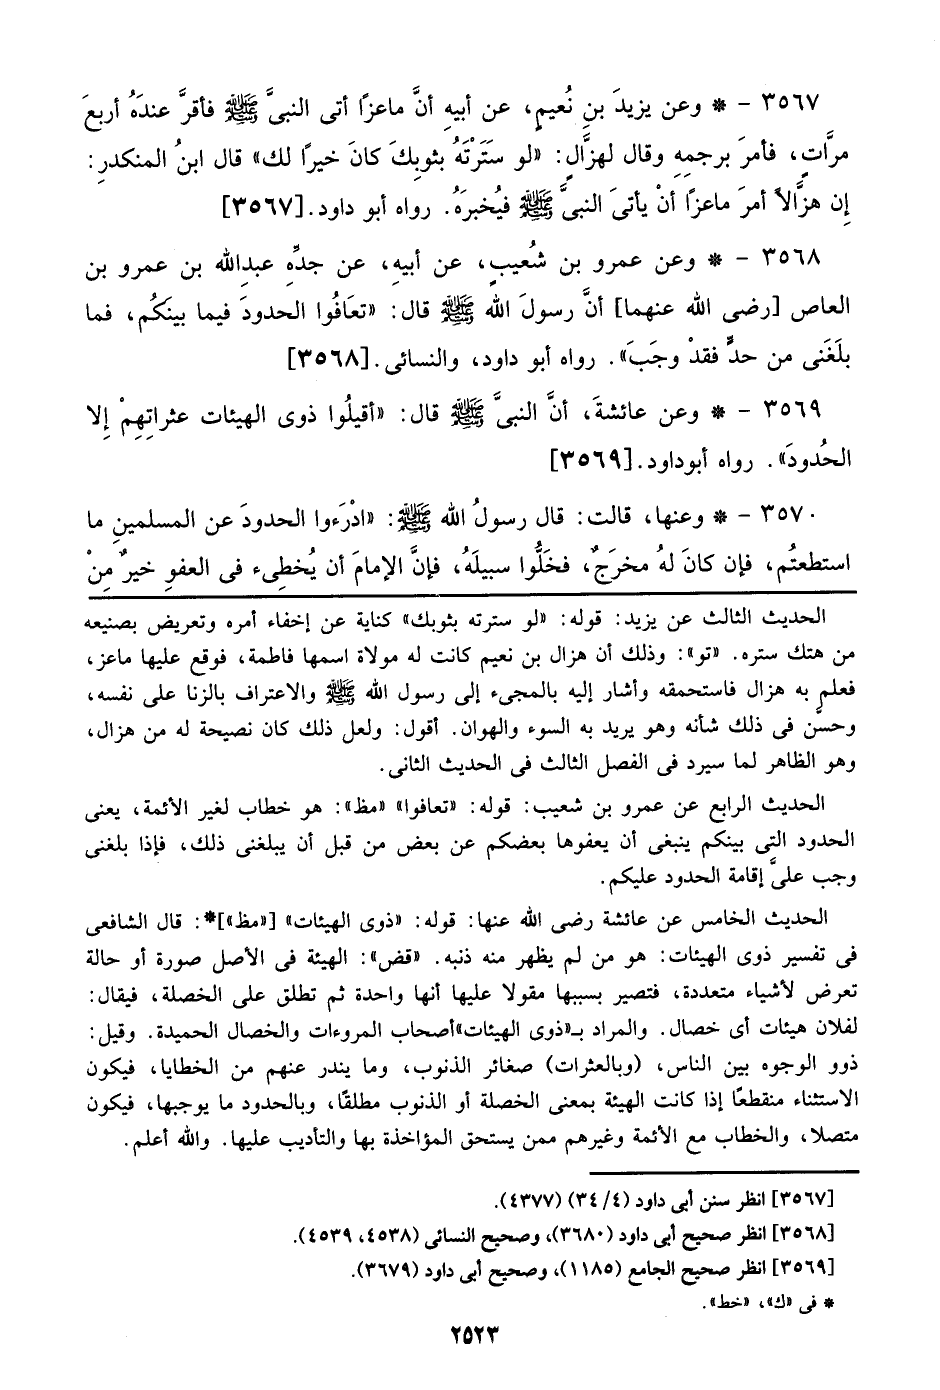 ٣٥٦٧ – * وعن يزيدَ بنِ نُعيمٍ، عن أبيهِ أنَّ ماعزًا أتى النبىَّ ﷺ فأقرَّ عندَهُ أربعَ
مرَّاتٍ، فأمرَ برجمِهِ وقال لهزَّالٍ: «لو سَتَرْتَهُ بثوبِكَ كانَ خيرًا لك» قال ابنُ المنكدرِ:
إن هزَّالاً أمرَ ماعزًا أنْ يأتىَ النبىَّ ﷺ فيُخبرَهُ. رواه أبو داود.[٣٥٦٧]
٣٥٦٨ – * وعن عمرو بن شُعيبٍ، عن أبيهِ، عن جدِّهِ عبدِالله بن عمرو بن
العاص [رضى الله عنهما] أنَّ رسولَ الله ﷺ قال: «تعَافُوا الحدودَ فيما بينَكُم، فما
بلَغَنى من حدٍّ فقدْ وجَبَ». رواه أبو داود، والنسائى.[٣٥٦٨]
٣٥٦٩ – * وعن عائشةَ، أنَّ النبىَّ ﷺ قال: «أقيلُوا ذوى الهيئات عثراتِهِمْ إلا
الحُدودَ». رواه أبوداود.[٣٥٦٩]
٣٥٧٠ – * وعنها، قالت: قال رسولُ الله ﷺ: «ادْرَءوا الحدودَ عن المسلمينِ ما
استطعتُم، فإن كانَ لهُ مخرَجٌ، فخَلُّوا سبيلَهُ، فإنَّ الإمامَ أن يُخطِىء فى العفوِ خيرٌ منْ
الحديث الثالث عن يزيد: قوله: «لو سترته بثوبك» كناية عن إخفاء أمره وتعريض بصنيعه
من هتك ستره. «تو»: وذلك أن هزال بن نعيم كانت له مولاة اسمها فاطمة، فوقع عليها ماعز،
فعلم به هزال فاستحمقه وأشار إليه بالمجىء إلى رسول الله ﷺ والاعتراف بالزنا على نفسه،
وحسَّن فى ذلك شأنه وهو يريد به السوء والهوان. أقول: ولعل ذلك كان نصيحة له من هزال،
وهو الظاهر لما سيرد فى الفصل الثالث فى الحديث الثانى.
الحديث الرابع عن عمرو بن شعيب: قوله: «تعافوا» «مظ»: هو خطاب لغير الأئمة، يعنى
الحدود التى بينكم ينبغى أن يعفوها بعضكم عن بعض من قبل أن يبلغنى ذلك، فإذا بلغنى
وجب علىَّ إقامة الحدود عليكم.
الحديث الخامس عن عائشة رضى الله عنها: قوله: «ذوى الهيئات» [«مظ»]*: قال الشافعى
فى تفسير ذوى الهيئات: هو من لم يظهر منه ذنبه. «قض»: الهيئة فى الأصل صورة أو حالة
تعرض لأشياء متعددة، فتصير بسببها مقولا عليها أنها واحدة ثم تطلق على الخصلة، فيقال:
لفلان هيئات أى خصال. والمراد بـ«ذوى الهيئات»أصحاب المروءات والخصال الحميدة. وقيل:
ذوو الوجوه بين الناس، (وبالعثرات) صغائر الذنوب، وما يندر عنهم من الخطايا، فيكون
الاستثناء منقطعًا إذا كانت الهيئة بمعنى الخصلة أو الذنوب مطلقًا، وبالحدود ما يوجبها، فيكون
متصلا، والخطاب مع الأئمة وغيرهم ممن يستحق المؤاخذة بها والتأديب عليها. والله أعلم.
[٣٥٦٧] انظر سنن أبى داود (٤/ ٣٤) (٤٣٧٧).
[٣٥٦٨] انظر صحيح أبى داود (٣٦٨٠)، وصحيح النسائى (٤٥٣٨، ٤٥٣٩).
[٣٥٦٩] انظر صحيح الجامع (١١٨٥)، وصحيح أبى داود (٣٦٧٩).
* فى «ك»، «خط».
٢٥٢٣